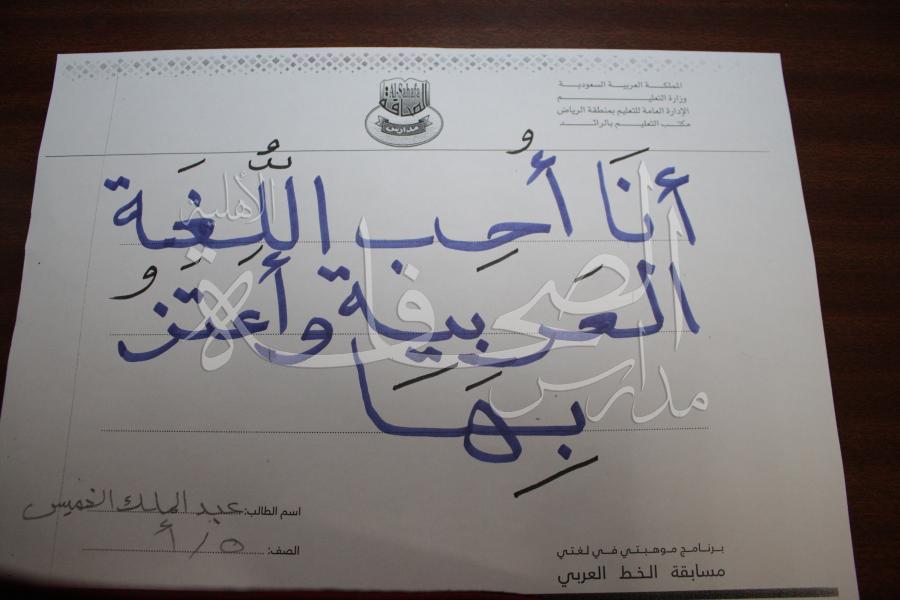 المملكة العربية السعودية
وزارة التعليم
الإدارة العامة للتعليم بمنطقة الرياض
مكتب التعليم بالرائد
Al-Sahafa
الصحافة
مدارس
أنَا أُحِب اللُّغَة
العَرَبِيَة وأعتزُ
بِهَا
الأهلية
الصحافة
مدارس
اسم الطالب: عبد الملك الخميس
الصف: ٥/أ
برنامج موهبتي في لغتي
مسابقة الخط العربي